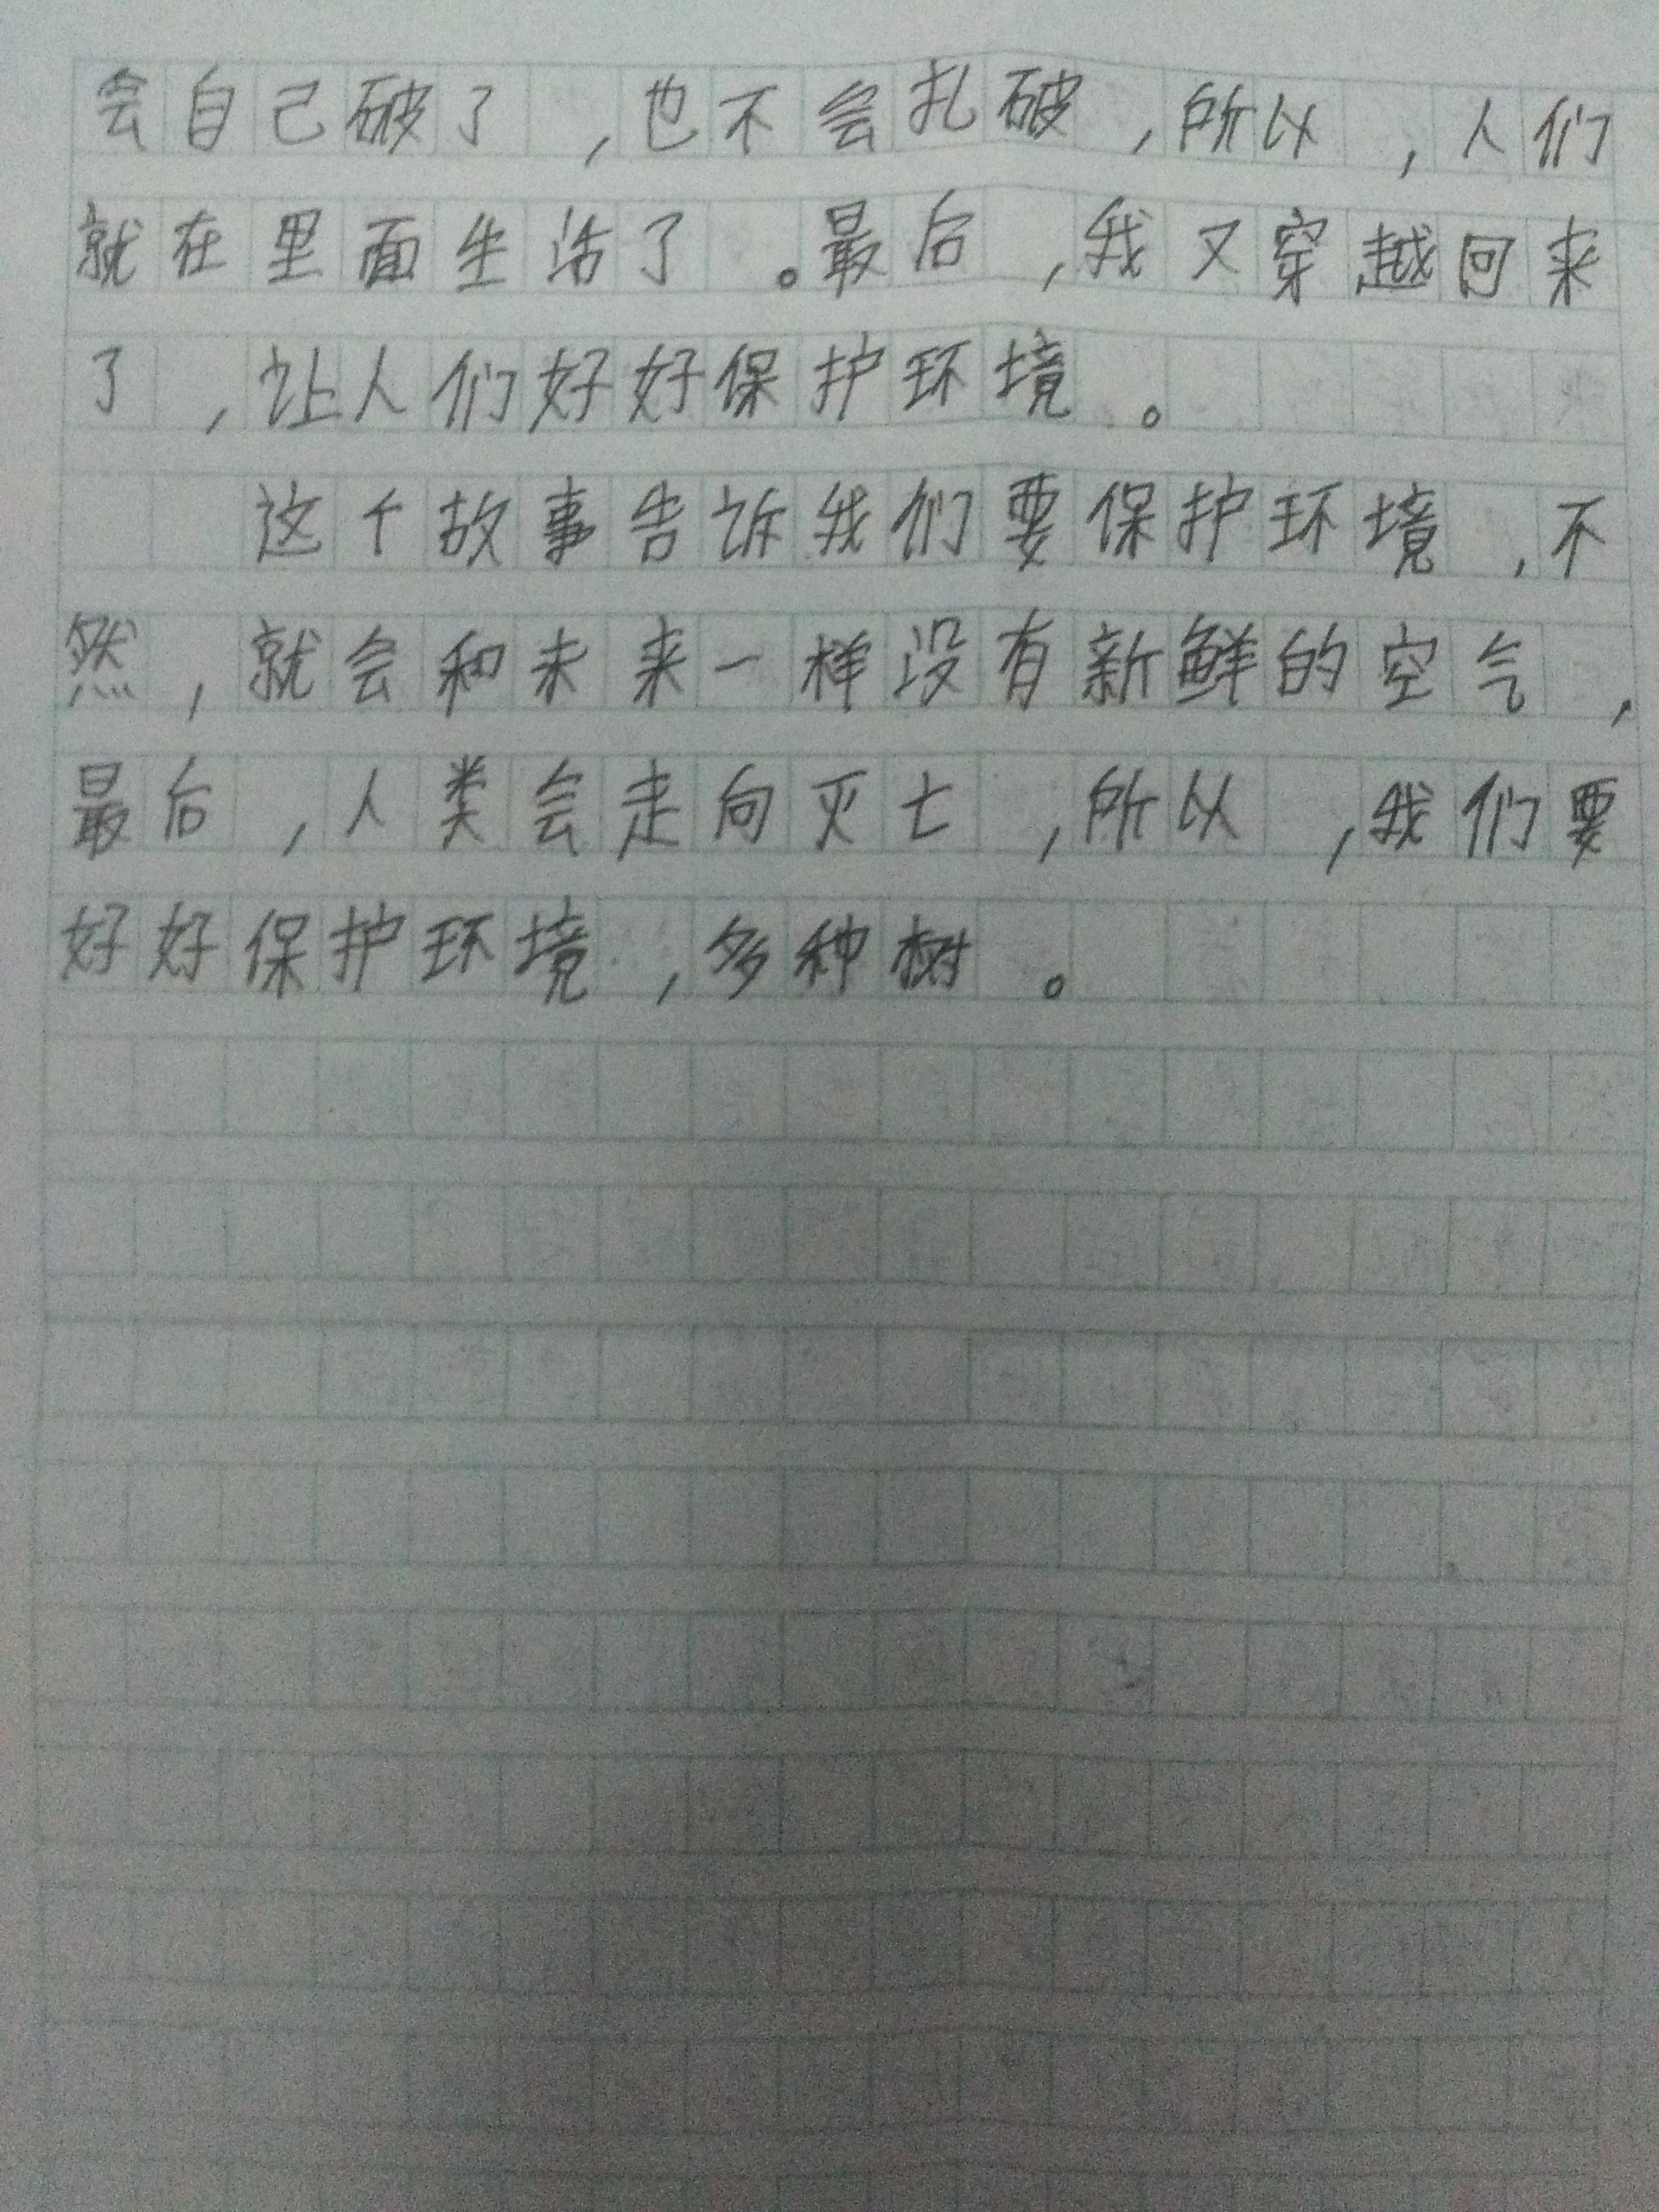 会自己破了,也不会扎破,所以,人们
就在里面生活了。最后,我又穿越回来
了,让人们好好保护环境。
这个故事告诉我们要保护环境,不
然,就会和未来一样没有新鲜的空气,
最后,人类会走向灭亡,所以,我们要
好好保护环境,多种树。